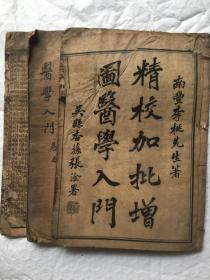 南豐李梴先生著
精校加批增
圖醫學入門
吳縣香孫張淦署
醫學入門